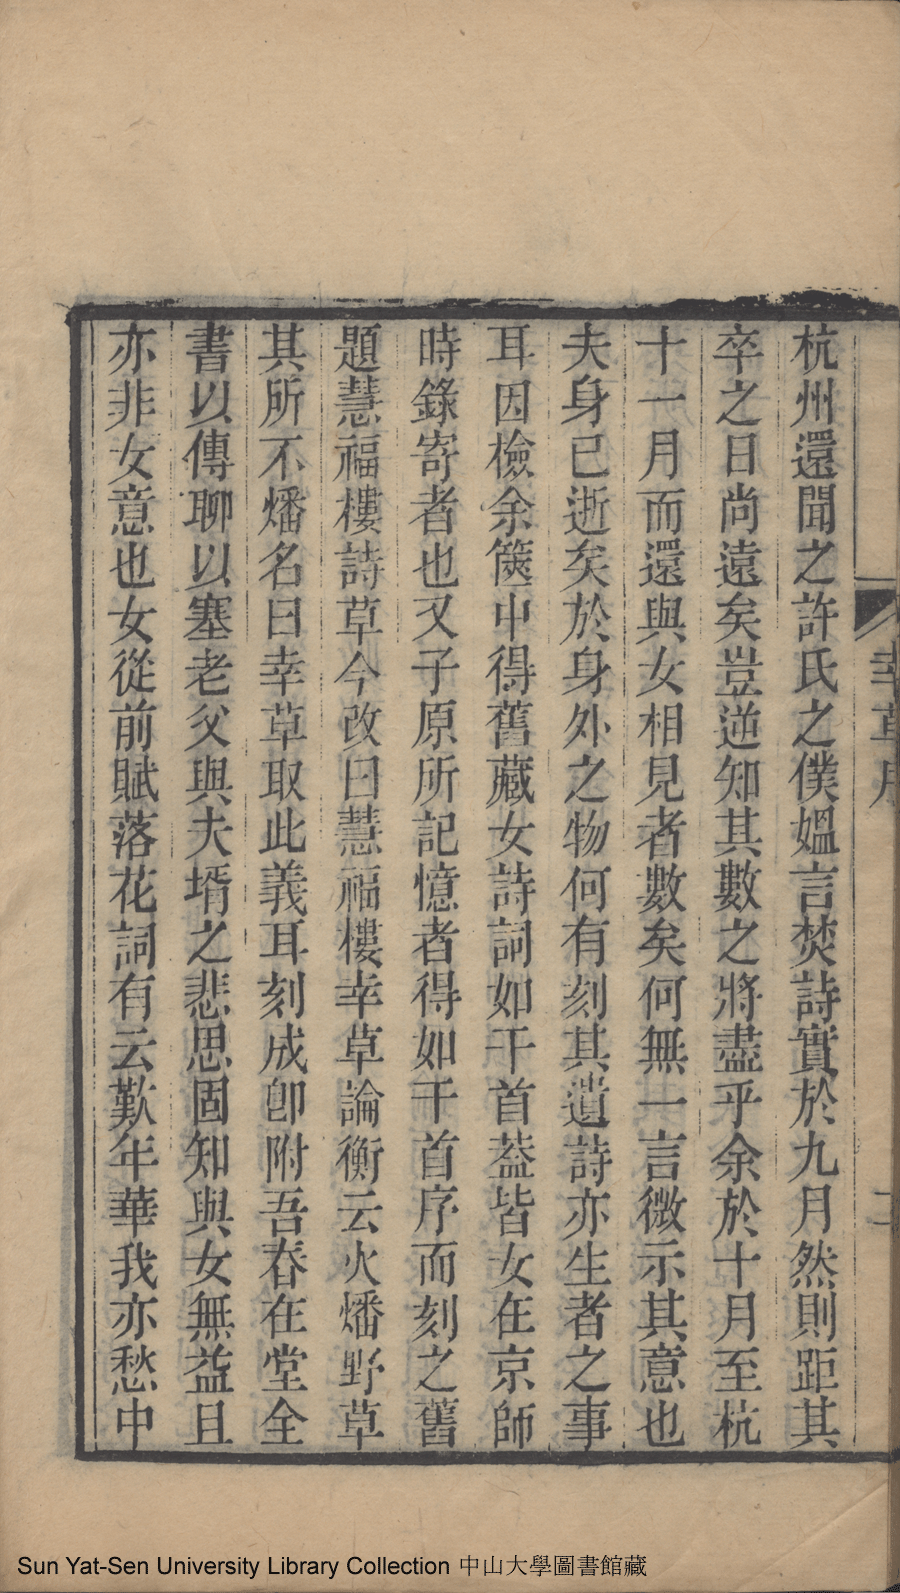 幸草序
二
杭州還聞之許氏之僕媼言焚詩實於九月然則距其
卒之日尚遠矣豈逆知其數之將盡乎余於十月至杭
十一月而還與女相見者數矣何無一言微示其意也
夫身已逝矣於身外之物何有刻其遺詩亦生者之事
耳因檢余篋中得舊藏女詩詞如干首葢皆女在京師
時錄寄者也又子原所記憶者得如干首序而刻之舊
題慧福樓詩草今改曰慧福樓幸草論衡云火燔野草
其所不燔名曰幸草取此義耳刻成卽附吾春在堂全
書以傳聊以塞老父與夫壻之悲思固知與女無益且
亦非女意也女從前賦落花詞有云歎年華我亦愁中
Sun Yat-Sen University Library Collection 中山大學圖書館藏